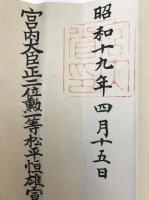 昭和十九年四月十五日
宮内大臣正三位勲一等松平恒雄宣